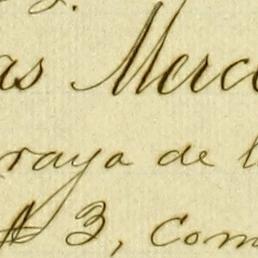 as Merc
raya de l
3, com